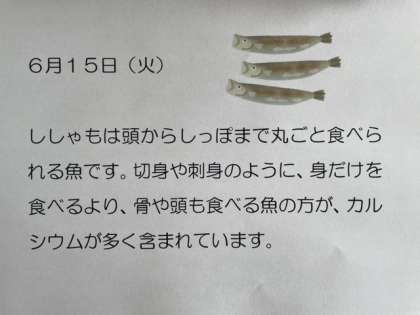 6月15日（火）
ししゃもは頭からしっぽまで丸ごと食べら
れる魚です。切身や刺身のように、身だけを
食べるより、骨や頭も食べる魚の方が、カル
シウムが多く含まれています。